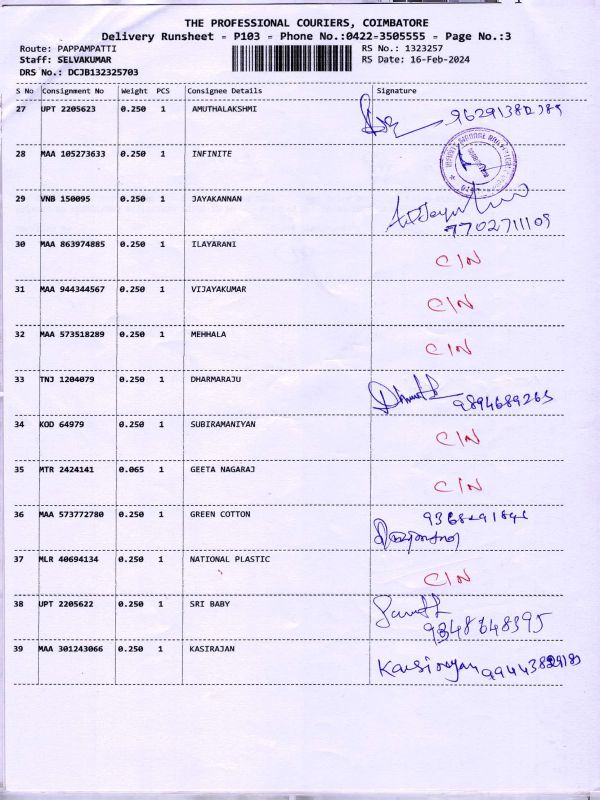 THE PROFESSIONAL COURIERS, COIMBATORE
Delivery Runsheet - P103 - Phone No.:0422-3505555 - Page No.:3
Route: PAPPAMPATTI RS No.: 1323257
Staff: SELVAKUMAR RS Date: 16-Feb-2024
DRS No.: DCJB132325703
S No Consignment No Weight PCS Consignee Details Signature
27 UPT 2205623 0.250 1 AMUTHALAKSHMI
28 MAA 105273633 0.250 1 INFINITE
29 VNB 150095 0.250 1 JAYAKANNAN
7702711109
30 MAA 863974885 0.250 1 ILAYARANI C/N
31 MAA 944344567 0.250 1 VIJAYAKUMAR C/N
32 MAA 573518289 0.250 1 MEHHALA C/N
33 TNJ 1204079 0.250 1 DHARMARAJU 9894689265
34 KOD 64979 0.250 1 SUBIRAMANIYAN C/N
35 MTR 2424141 0.065 1 GEETA NAGARAJ C/N
36 MAA 573772780 0.250 1 GREEN COTTON
37 MLR 40694134 0.250 1 NATIONAL PLASTIC C/N
38 UPT 2205622 0.250 1 SRI BABY
39 MAA 301243066 0.250 1 KASIRAJAN Kasirajan